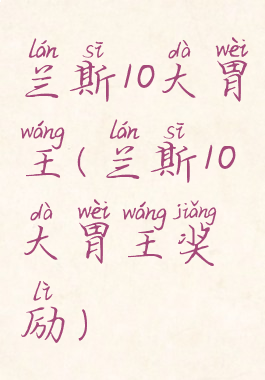 lán sī dà wèi
兰斯10大胃
wáng lán sī
王(兰斯10
dà wèi wáng jiǎng
大胃王奖
lì
励)